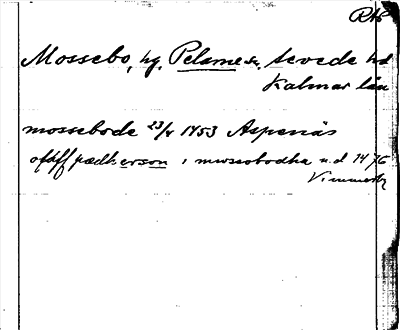 RAÄ
Mossebo, hg, Pelarne sn. Sevede hd
Kalmar län
mossebode 23/4 1453 Aspenäs
off pædherson i mwssobodha u.d 1476
Vimmerby